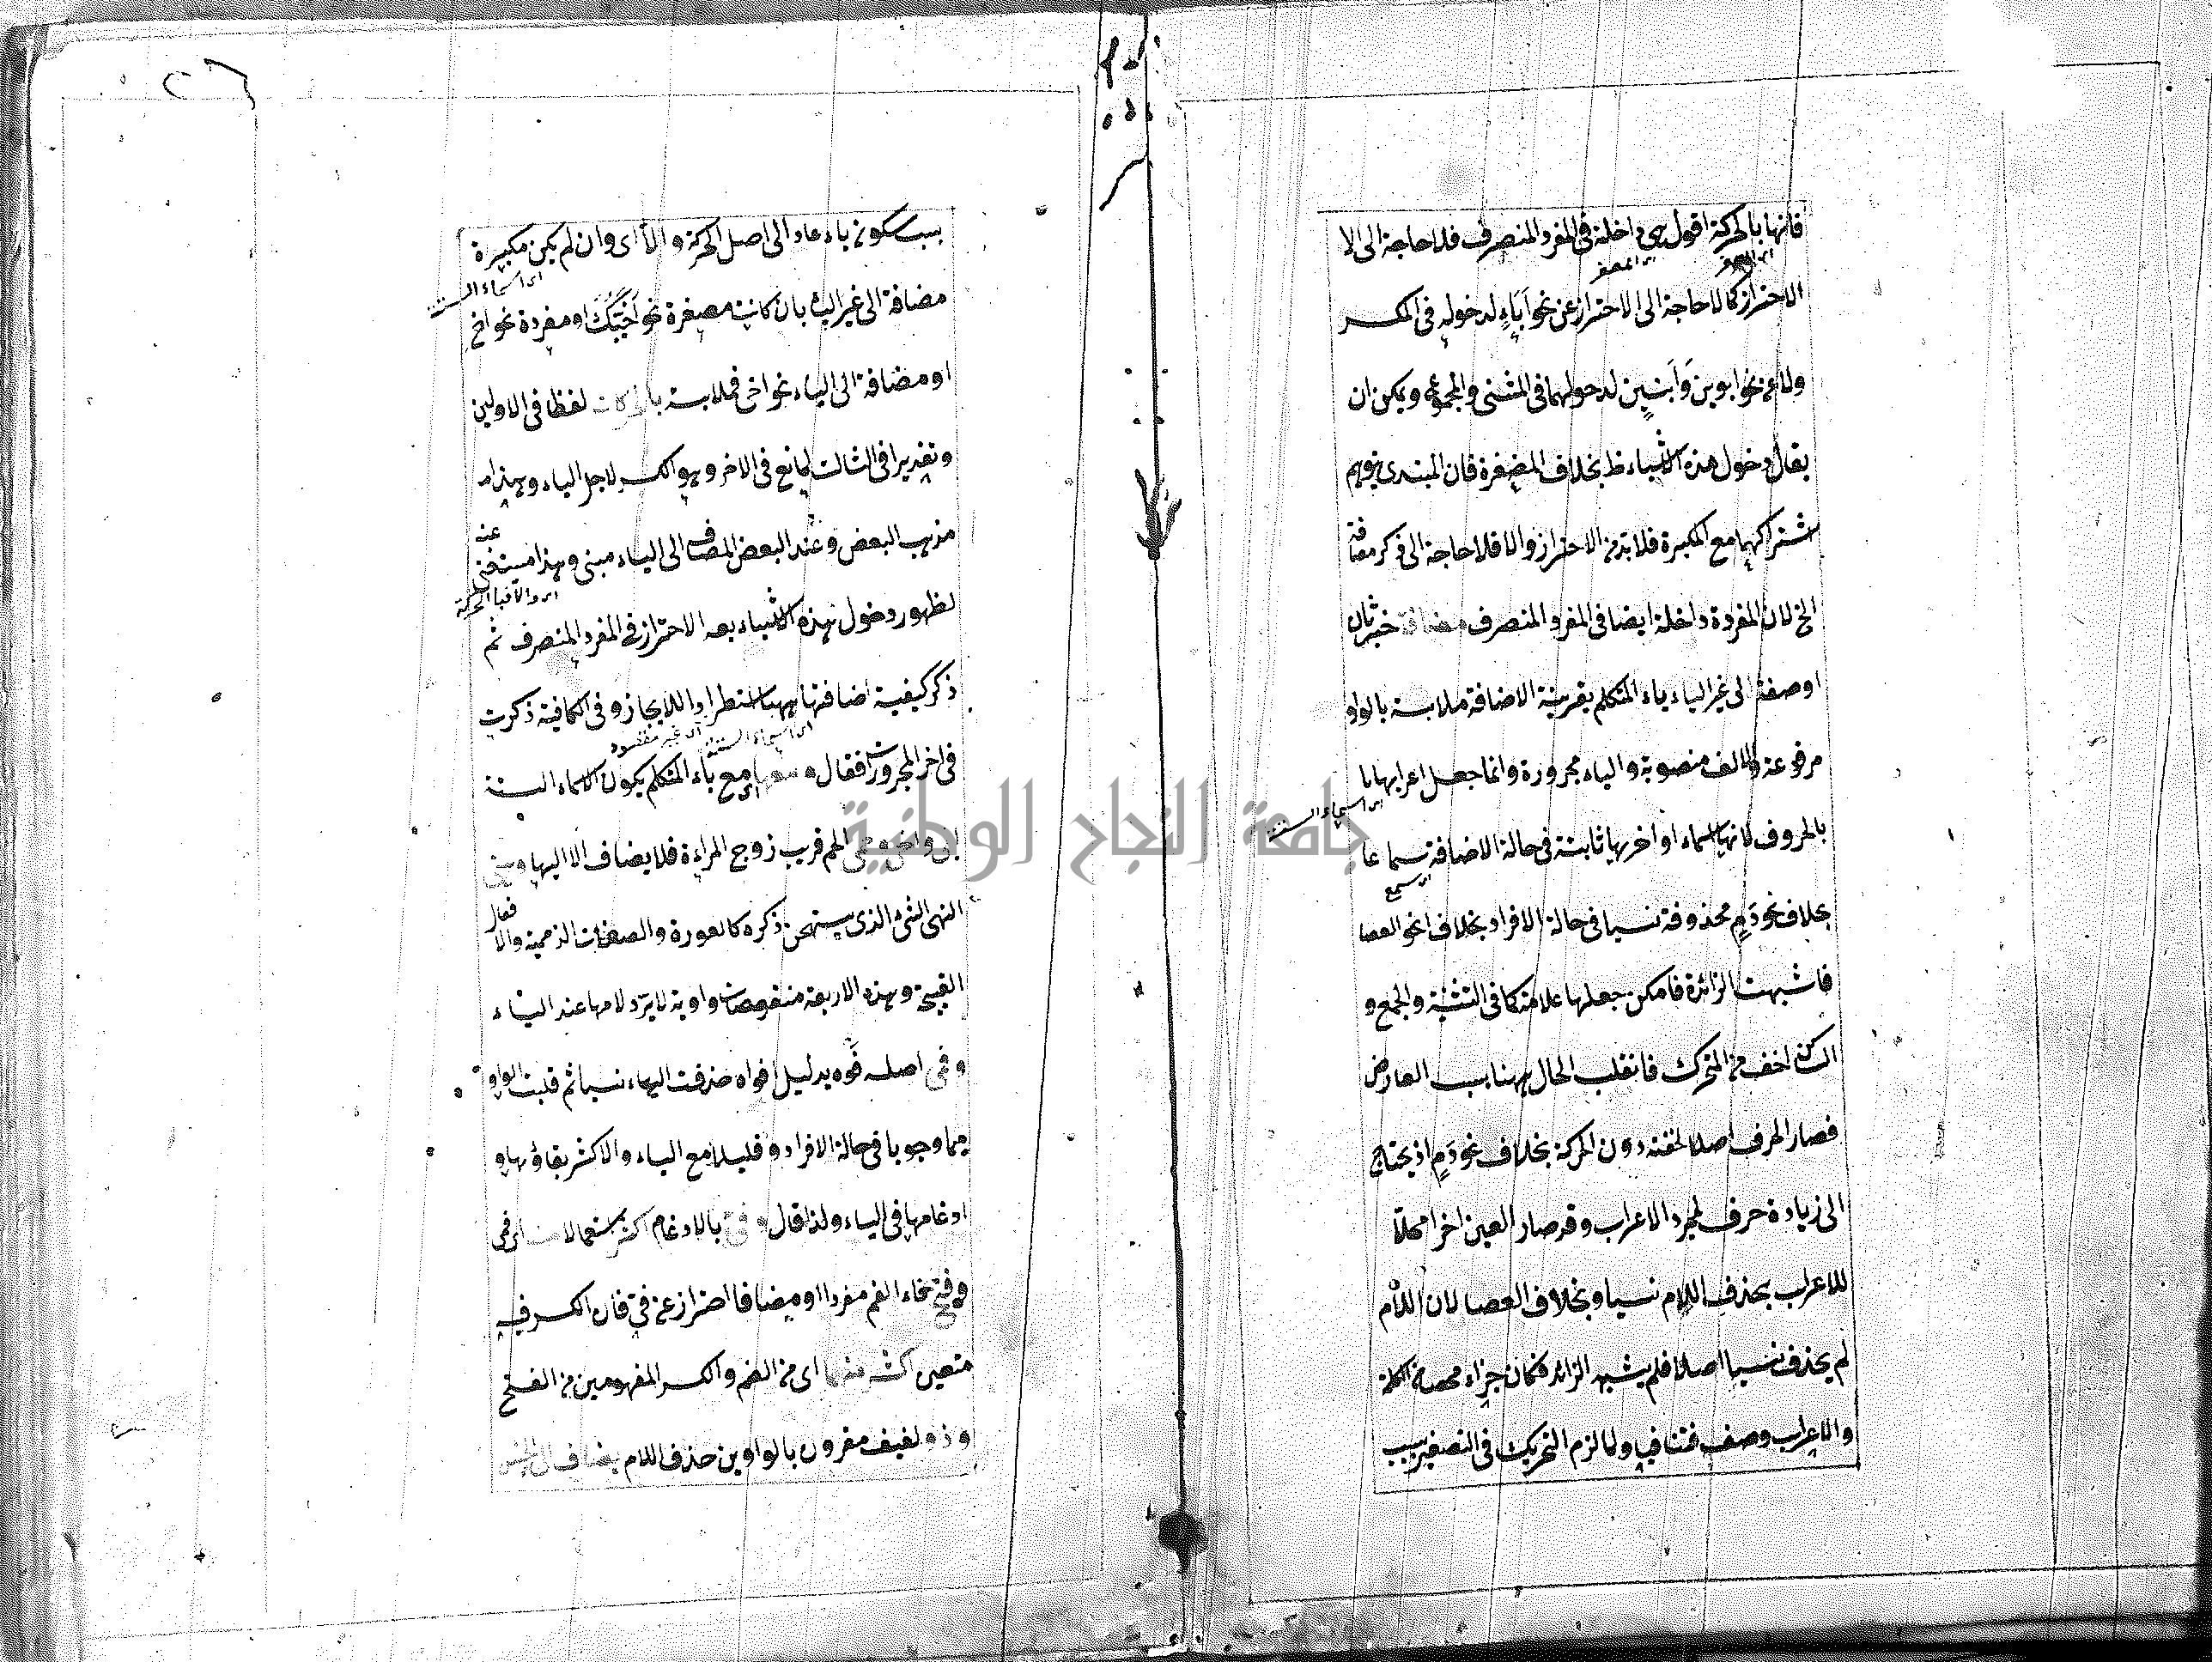 فانها بالحركة اقول هي داخلة في المفرد المنصرف فلا حاجة الى الا
الاحتراز كما لا حاجة الى الاحتراز عن نحو آباء لدخوله في المكسر
ولا عن نحو ابوين وابنين لدخولهما في المثنى والمجموع ويمكن ان
يقال دخول هذه الاشياء ظ بخلاف المصغرة فان المبتدى يتوهم
اشتراكها مع المكبرة فلا بد من الاحتراز والا فلا حاجة الى ذكر مضافة
الخ لان المفردة داخلة ايضا في المفرد المنصرف مضافة خبر ثان
او صفة الى غير الياء ياء المتكلم بقرينة الاضافة ملابسة بالواو
مرفوعة والالف منصوبة والياء مجرورة وانما جعل اعرابها با
اى اسماء الستة
بالحروف لانها اسماء اواخرها ثابتة في حالة الاضافة سماعا
بخلاف نحو دم محذوفة نسيا في حالة الافراد بخلاف نحو العصا
فاشبهت الزائدة فامكن جعلها علامة كما في التثنية والجمع و
الساكن اخف من المتحرك فانقلب الحال ههنا بسبب العارض
فصار الحرف اصلا لخفته دون الحركة بخلاف نحو دم اذ يحتاج
الى زيادة حرف لمجرد الاعراب وقد صار العين اخرا محلا
للاعراب بحذف اللام نسيا وبخلاف العصا لان اللام
لم يحذف نسيا اصلا فلم يشبه الزائد فكان جزاء محصة الكلمة
والاعراب وصف فتنافيا ولما لزم التحريك في التصغير بسبب
بسبب سكون ياء عاد الى اصل الحركة والا اى وان لم يكن مكبرة
اى اسماء الستة
مضافة الى غير الياء بان كانت مصغرة نحو أخيك او مفردة نحو اخ
او مضافة الى الياء نحو اخى فملابسة بالحركات لفظا في الاولين
وتقديرا في الثالث لمانع في الاخر وهو الكسر لاجل الياء وهذا
مذهب البعض وعند البعض المضاف الى الياء مبنى وهذا مستغنى عنه
لظهور دخول هذه الاشياء بعد الاحتراز في المفرد المنصرف ثم
ذكر كيفية اضافتها ههنا استطرادا للايجاز وفي الكافية ذكرت
في اخر المجرورات فقال مع ياء المتكلم يكون الاسماء الستة
ابى واخى وحمى الحم قريب زوج المراءة فلا يضاف الا اليها وهنى
الهن الشئ الذى يستهجن ذكره كالعورة والصفات الذميمة والافعال
القبيحة وهذه الاربعة منقوصات واوية لا يرد لامها عند الياء
وفمى اصله فوه بدليل افواه حذفت الهاء نسيا ثم قلبت الواو
ميما وجوبا في حالة الافراد وقليلا مع الياء والاكثر بقاؤها و
ادغامها في الياء ولذا قال وفى بالادغام اكثر استعمالا من فمى
وفتح فاء الفم مفردا او مضافا احتراز عن فى فان الكسر فيه
متعين اكثر منهما اى من الضم والكسر المفهومين من الفتح
وذو لفيف مقرون بالواوين حذف اللام يضاف الى الجنس
جامعة النجاح الوطنية